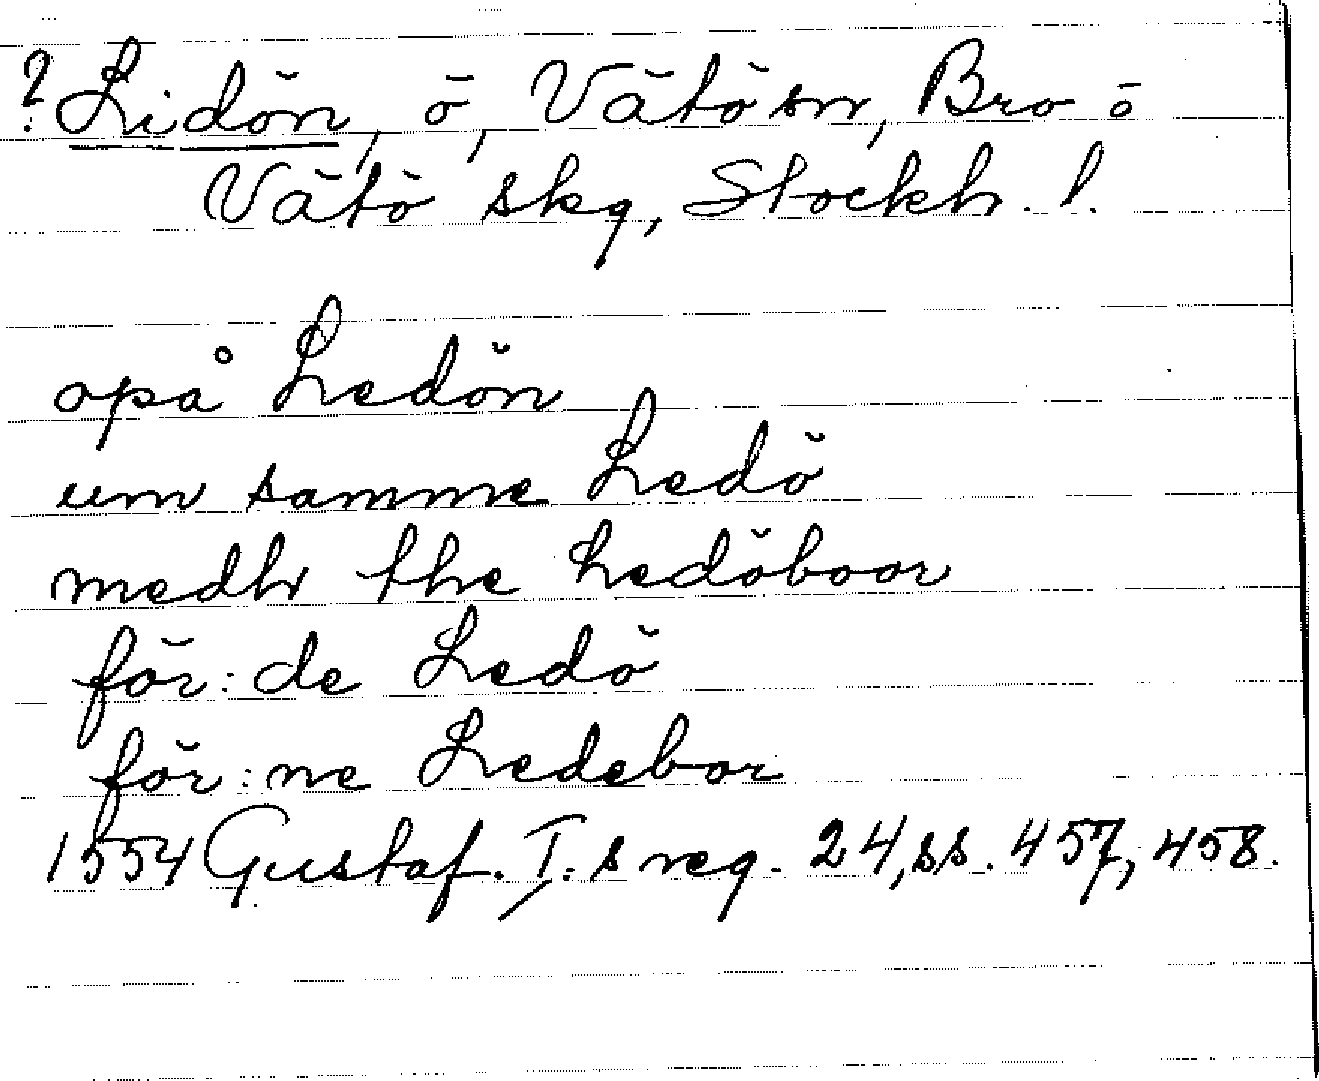 ? Lidön, ö, Vätö sn, Bro o
Vätö skg, Stockh. l.
opå Ledön
um samme Ledö
medh the Ledöboor
för:de Ledö
för:ne Ledebor
1554 Gustaf. I:s reg. 24, ss. 457, 458.